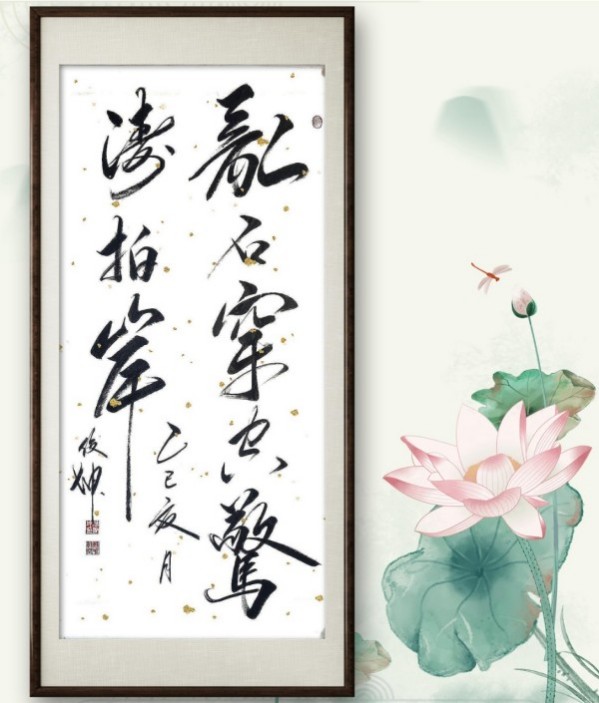 亂石穿空驚
濤拍岸
乙巳夏月
俊